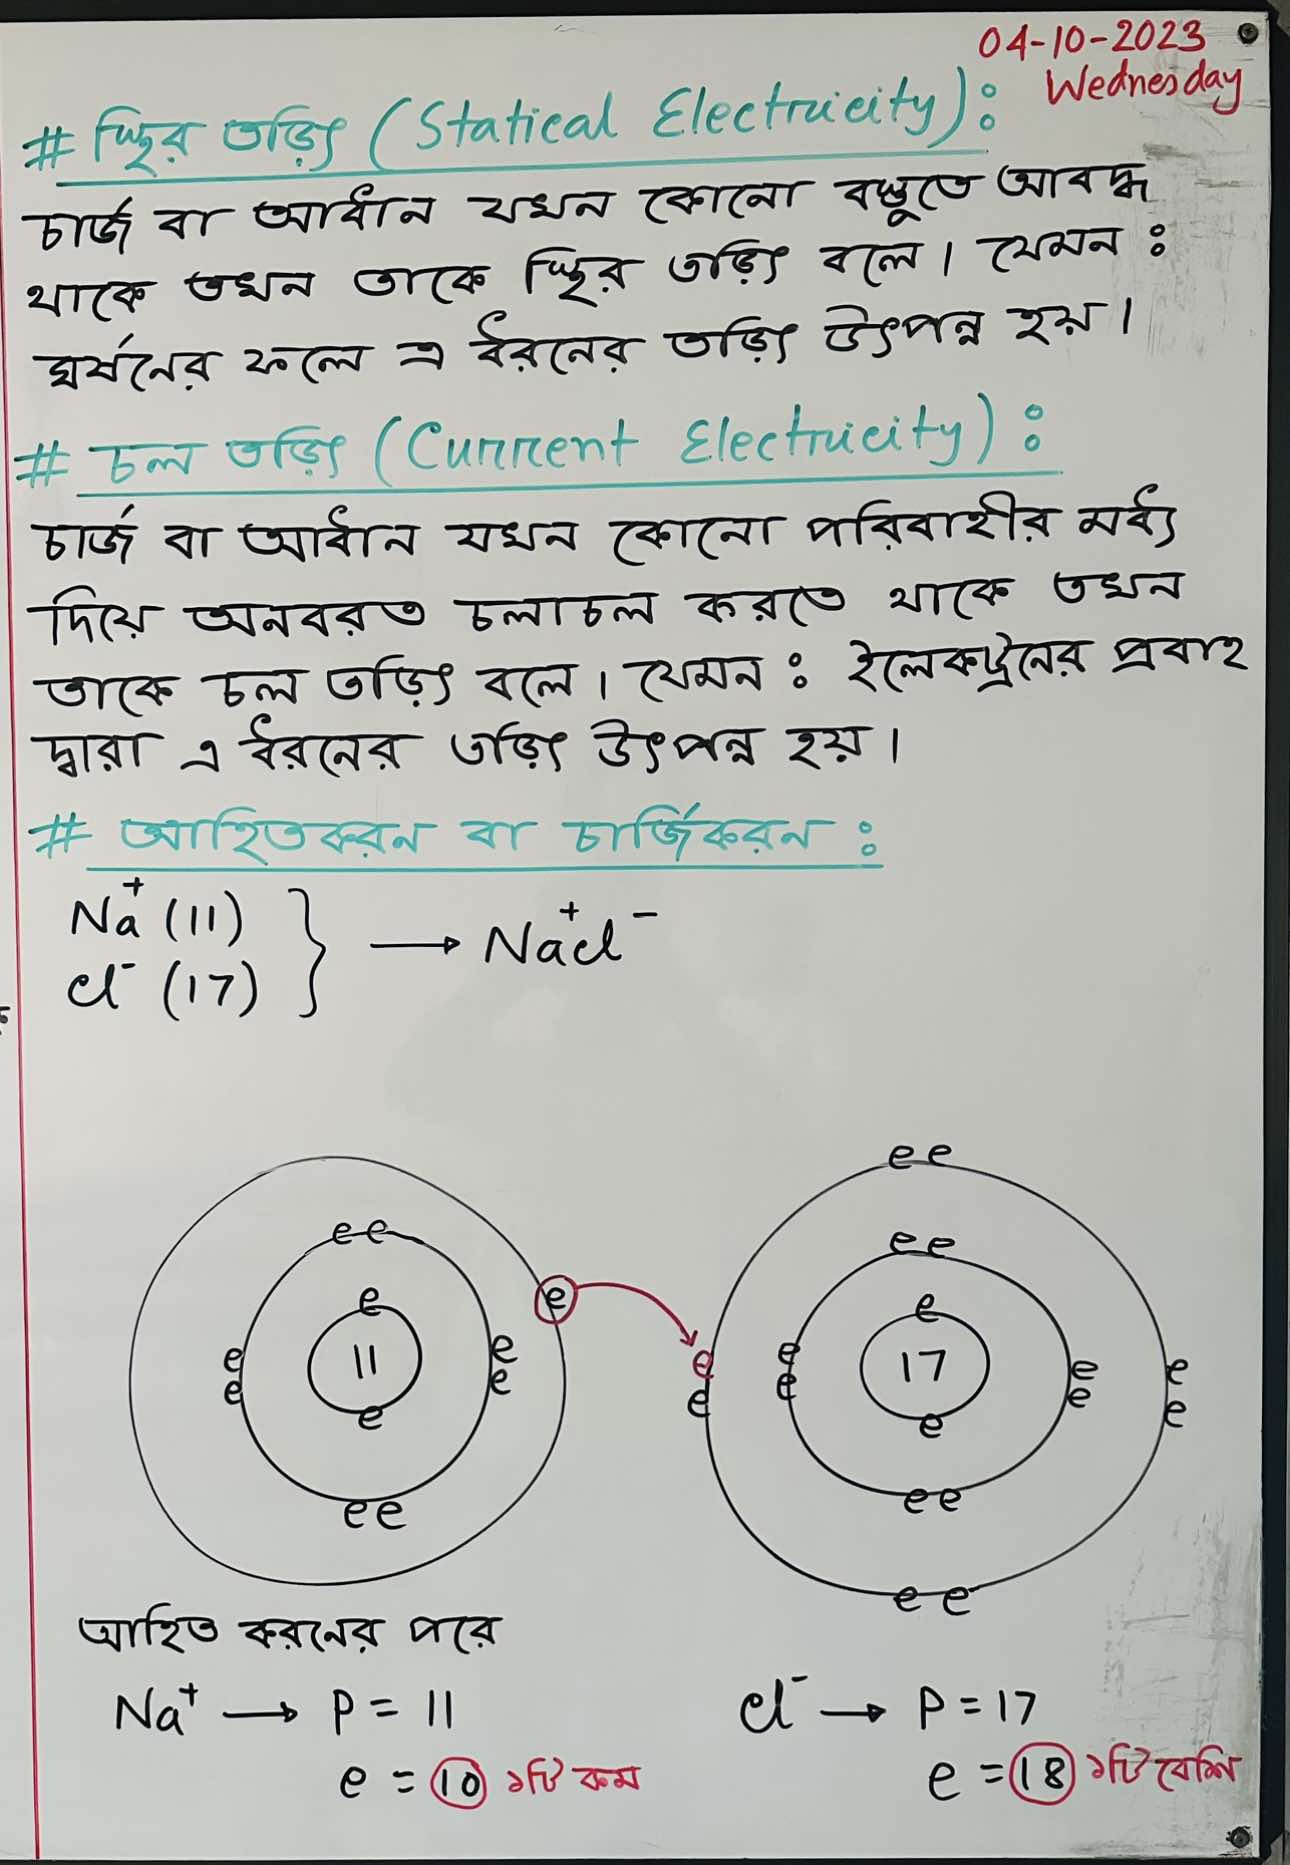 04-10-2023
Wednesday
# স্থির তড়িৎ (Statical Electricity):
চার্জ বা আধান যখন কোনো বস্তুতে আবদ্ধ
থাকে তখন তাকে স্থির তড়িৎ বলে। যেমন :
ঘর্ষনের ফলে এ ধরনের তড়িৎ উৎপন্ন হয়।
# চল তড়িৎ (Current Electricity) :
চার্জ বা আধান যখন কোনো পরিবাহীর মধ্য
দিয়ে অনবরত চলাচল করতে থাকে তখন
তাকে চল তড়িৎ বলে। যেমন : ইলেকট্রনের প্রবাহ
দ্বারা এ ধরনের তড়িৎ উৎপন্ন হয়।
# আহিতকরন বা চার্জিকরন :
Na⁺ (11)
Cl⁻ (17)
} → Na⁺Cl⁻
e e
e e
e e
e
e
e
11
e
e
e
e
e
e e
e
e
e
e
17
e
e
e
e
e
e
e
e e
e e
আহিত করনের পরে
Na⁺ → P = 11
e = 10 ১টি কম
Cl⁻ → P = 17
e = 18 ১টি বেশি